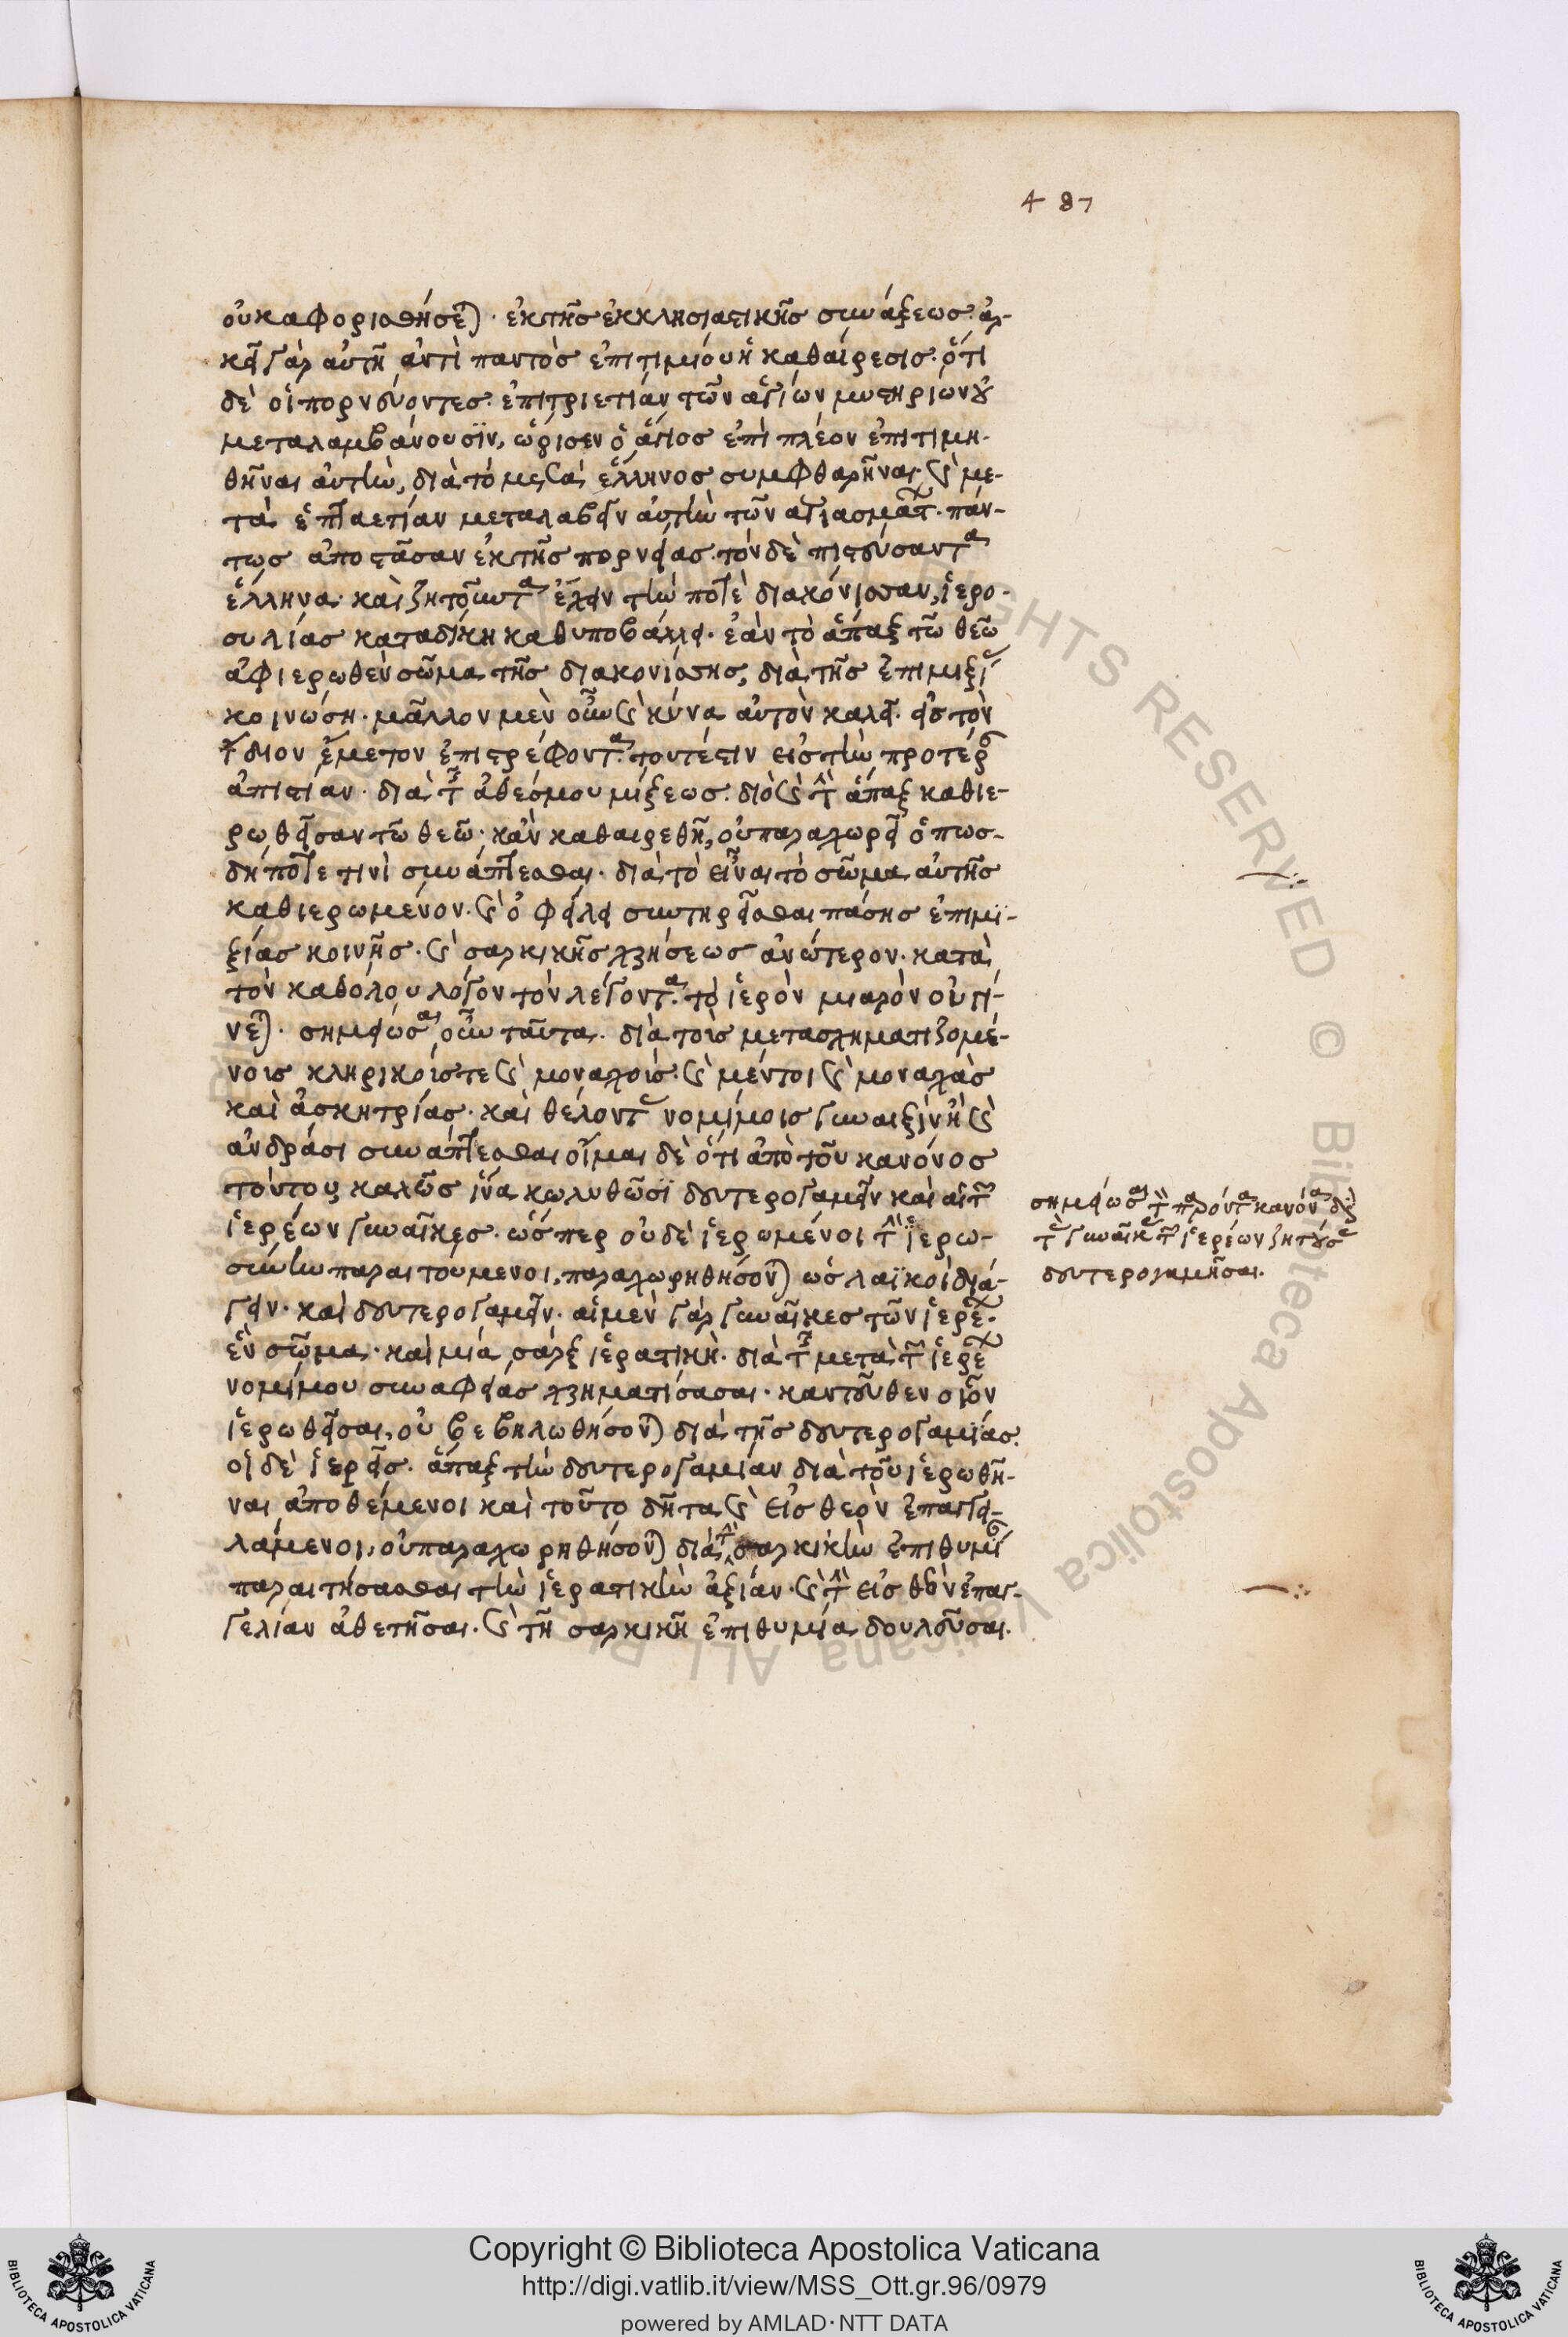 487
οὐκ ἀφορισθήσεται. ἐκ τῆς ἐκκλησιαστικῆς συνάξεως· ἀρ-
κεῖ γὰρ αὐτῇ ἀντὶ παντὸς ἐπιτιμίου ἡ καθαίρεσις. ὅτι
δὲ οἱ πορνεύοντες ἐπὶ τριετίαν τῶν ἁγίων μυστηρίων οὐ
μεταλαμβάνουσιν, ὥρισεν ὁ ἅγιος ἐπὶ πλέον ἐπιτιμη-
θῆναι αὐτὴν, διὰ τὸ μετὰ ἕλληνος συμφθαρῆναι καὶ με-
τὰ ἑπταετίαν μεταλαβεῖν αὐτὴν τῶν ἁγιασμάτων. πάν-
τως ἀποστᾶσαν ἐκ τῆς πορνείας. τὸν δὲ πιστεύσαντα
ἕλληνα. καὶ ζητοῦντα ἔχειν τὴν ποτὲ διακόνισσαν, ἱερο-
συλίας καταδίκη καθυποβάλλει. ἐὰν τὸ ἅπαξ τῶ θεῶ
ἀφιερωθὲν σῶμα τῆς διακονίσσης, διὰ τῆς ἐπιμιξίας
κοινώση. μᾶλλον μὲν οὖν καὶ κύνα αὐτὸν καλεῖ. εἰς τὸν
ἴδιον ἔμετον ἐπιστρέφοντα. τουτέστιν εἰς τὴν προτέραν
ἀπιστίαν. διὰ τῆς ἀθέσμου μίξεως. διὸ καὶ τὴν ἅπαξ καθιε-
ρωθεῖσαν τῶ θεῶ, κἂν καθαιρεθῆ, οὐ παραχωρεῖ ὁπωσ-
δήποτε τινὶ συνάπτεσθαι. διὰ τὸ εἶναι τὸ σῶμα αὐτῆς
καθιερωμένον. καὶ ὀφείλει συντηρεῖσθαι πάσης ἐπιμι-
ξίας κοινῆς. καὶ σαρκικῆς χρήσεως ἀνώτερον. κατὰ
τὸν καθόλου λόγον τὸν λέγοντα. τὸ ἱερὸν μιαρὸν οὐ γί-
νεται. σημείωσαι οὖν ταῦτα. διὰ τοὺς μετασχηματιζομέ-
νους κληρικούς τε καὶ μοναχούς. καὶ μέντοι καὶ μοναχὰς
καὶ ἀσκητρίας. καὶ θέλοντας νομίμοις γυναιξὶν ἢ καὶ
ἀνδράσι συνάπτεσθαι οἶμαι δὲ ὅτι ἀπὸ τοῦ κανόνος
τούτου καλῶς ἵνα κωλυθῶσι δευτερογαμεῖν καὶ αἱ τῶν
ἱερέων γυναῖκες. ὥσπερ οὐδὲ ἱερωμένοι τὴν ἱερω-
σύνην παραιτούμενοι, παραχωρηθήσονται ὡς λαϊκοὶ διά-
γειν. καὶ δευτερογαμεῖν. αἱ μὲν γὰρ γυναῖκες τῶν ἱερέων.
ἓν σῶμα. καὶ μία σὰρξ ἱερατικὴ. διὰ τῆς μετὰ τῶν ἱερέων
νομίμου συναφείας χρηματίσασαι. κἀντεῦθεν οἷον
ἱερωθεῖσαι, οὐ βεβηλωθήσονται διὰ τῆς δευτερογαμίας.
οἱ δὲ ἱερεῖς. ἅπαξ τὴν δευτερογαμίαν διὰ τοῦ ἱερωθῆ-
ναι ἀποθέμενοι καὶ τοῦτο δῆτα καὶ εἰς θεὸν ἐπαγγει-
λάμενοι, οὐ παραχωρηθήσονται διὰ τὴν σαρκικὴν ἐπιθυμίαν
παραιτήσασθαι τὴν ἱερατικὴν ἀξίαν. καὶ τὴν εἰς θεὸν ἐπαγ-
γελίαν ἀθετῆσαι. καὶ τῆ σαρκικῆ ἐπιθυμία δουλεῦσαι.
σημείωσαι τὸν παρόντα κανόνα διὰ
τὰς γυναῖκας τῶν ἱερέων ζητούσας
δευτερογαμῆσαι.
RIGHTS RESERVED © Biblioteca Apostolica Vaticana ALL
Copyright © Biblioteca Apostolica Vaticana
http://digi.vatlib.it/view/MSS_Ott.gr.96/0979
powered by AMLAD·NTT DATA
BIBLIOTECA APOSTOLICA VATICANA
BIBLIOTECA APOSTOLICA VATICANA